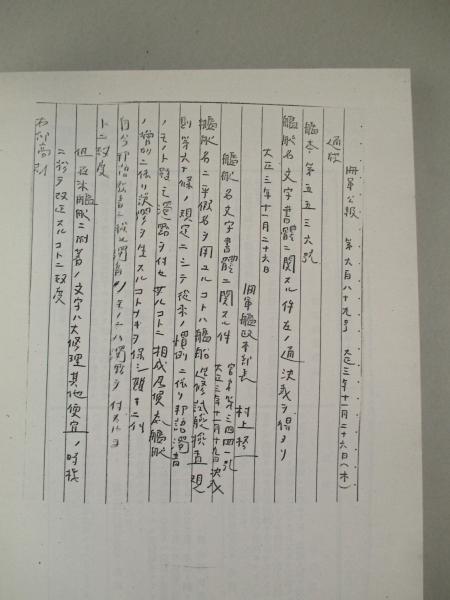 海軍公報 第六百八十九号 大正三年十一月二十六日(木)
通牒
艦本第五五三六号
艦船名文字書體ニ関スル件左ノ通決裁ヲ得タリ
大正三年十一月二十六日
海軍艦政本部長 村上格一
艦船名文字書體ニ関スル件
官房第三四四一号
大正三年十一月十九日決裁
艦船名ニ平假名ヲ用ユルコトハ艦船造修試験検査規
則第六十條ノ規定ニシテ従来ノ慣例ニ依リ邦語濁音
ノモノト雖モ濁點ヲ付セサルコトニ相成居候處艦船
ノ増加ニ依リ誤聞ヲ生スルコトナキヲ保シ難キニ付
自今邦語
濁音ノモノニハ濁點ヲ付スルコ
トニ致度
但在来艦船ニ附着ノ文字ハ大修理其他便宜ノ時機
ニ於テ改正スルコトニ致度
右仰高裁